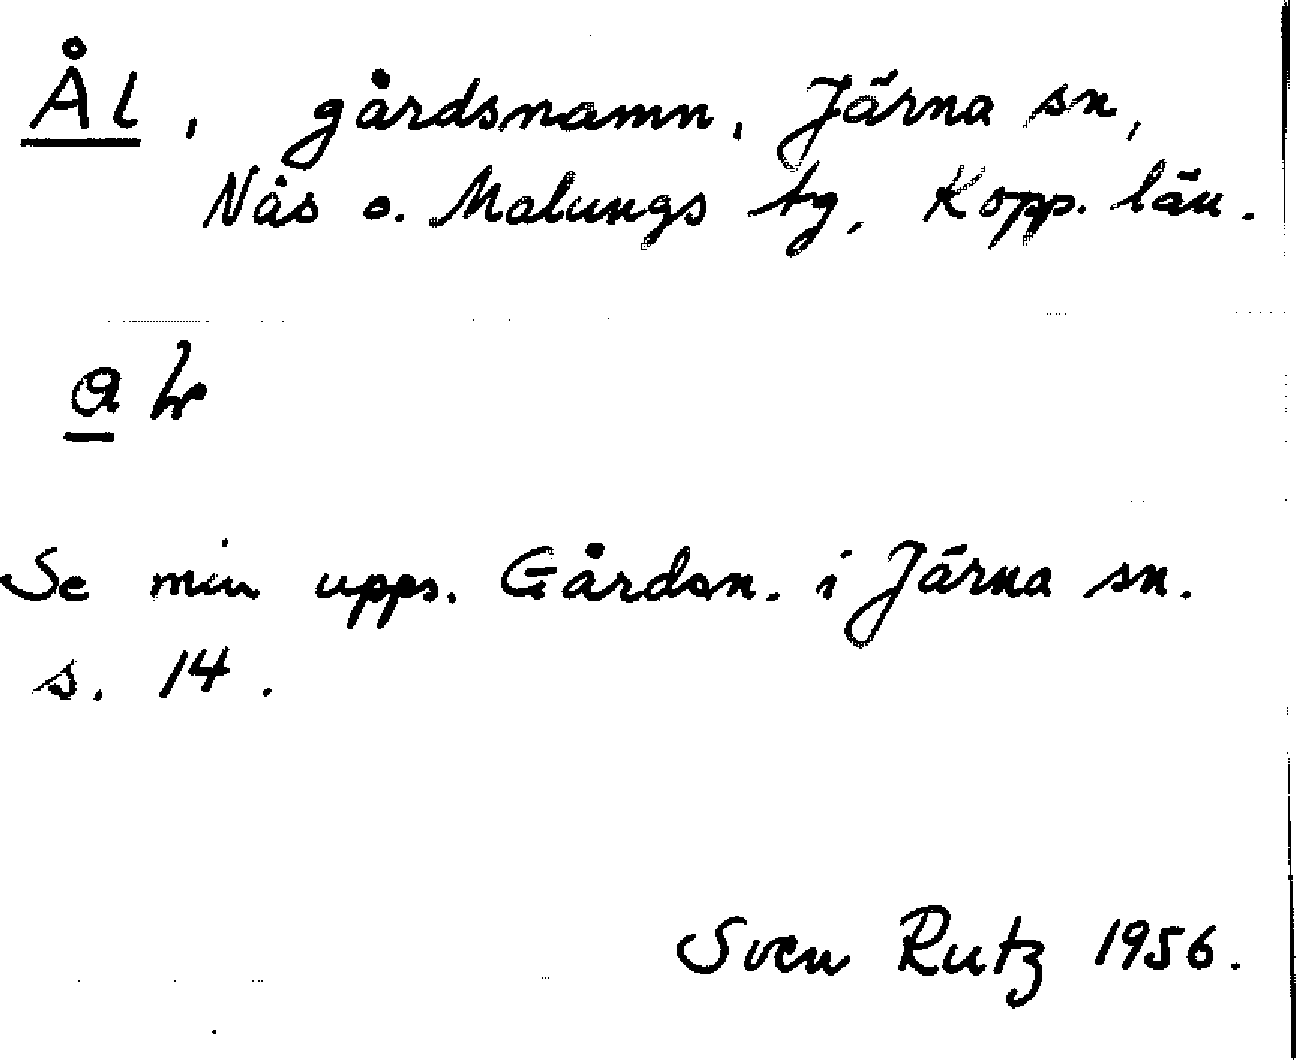 Ål, gårdsnamn, Järna sn,
Näs o. Malungs tg, Kopp. län.
Se min upps. Gårdsn. i Järna sn.
s. 14.
Sven Rutz 1956.